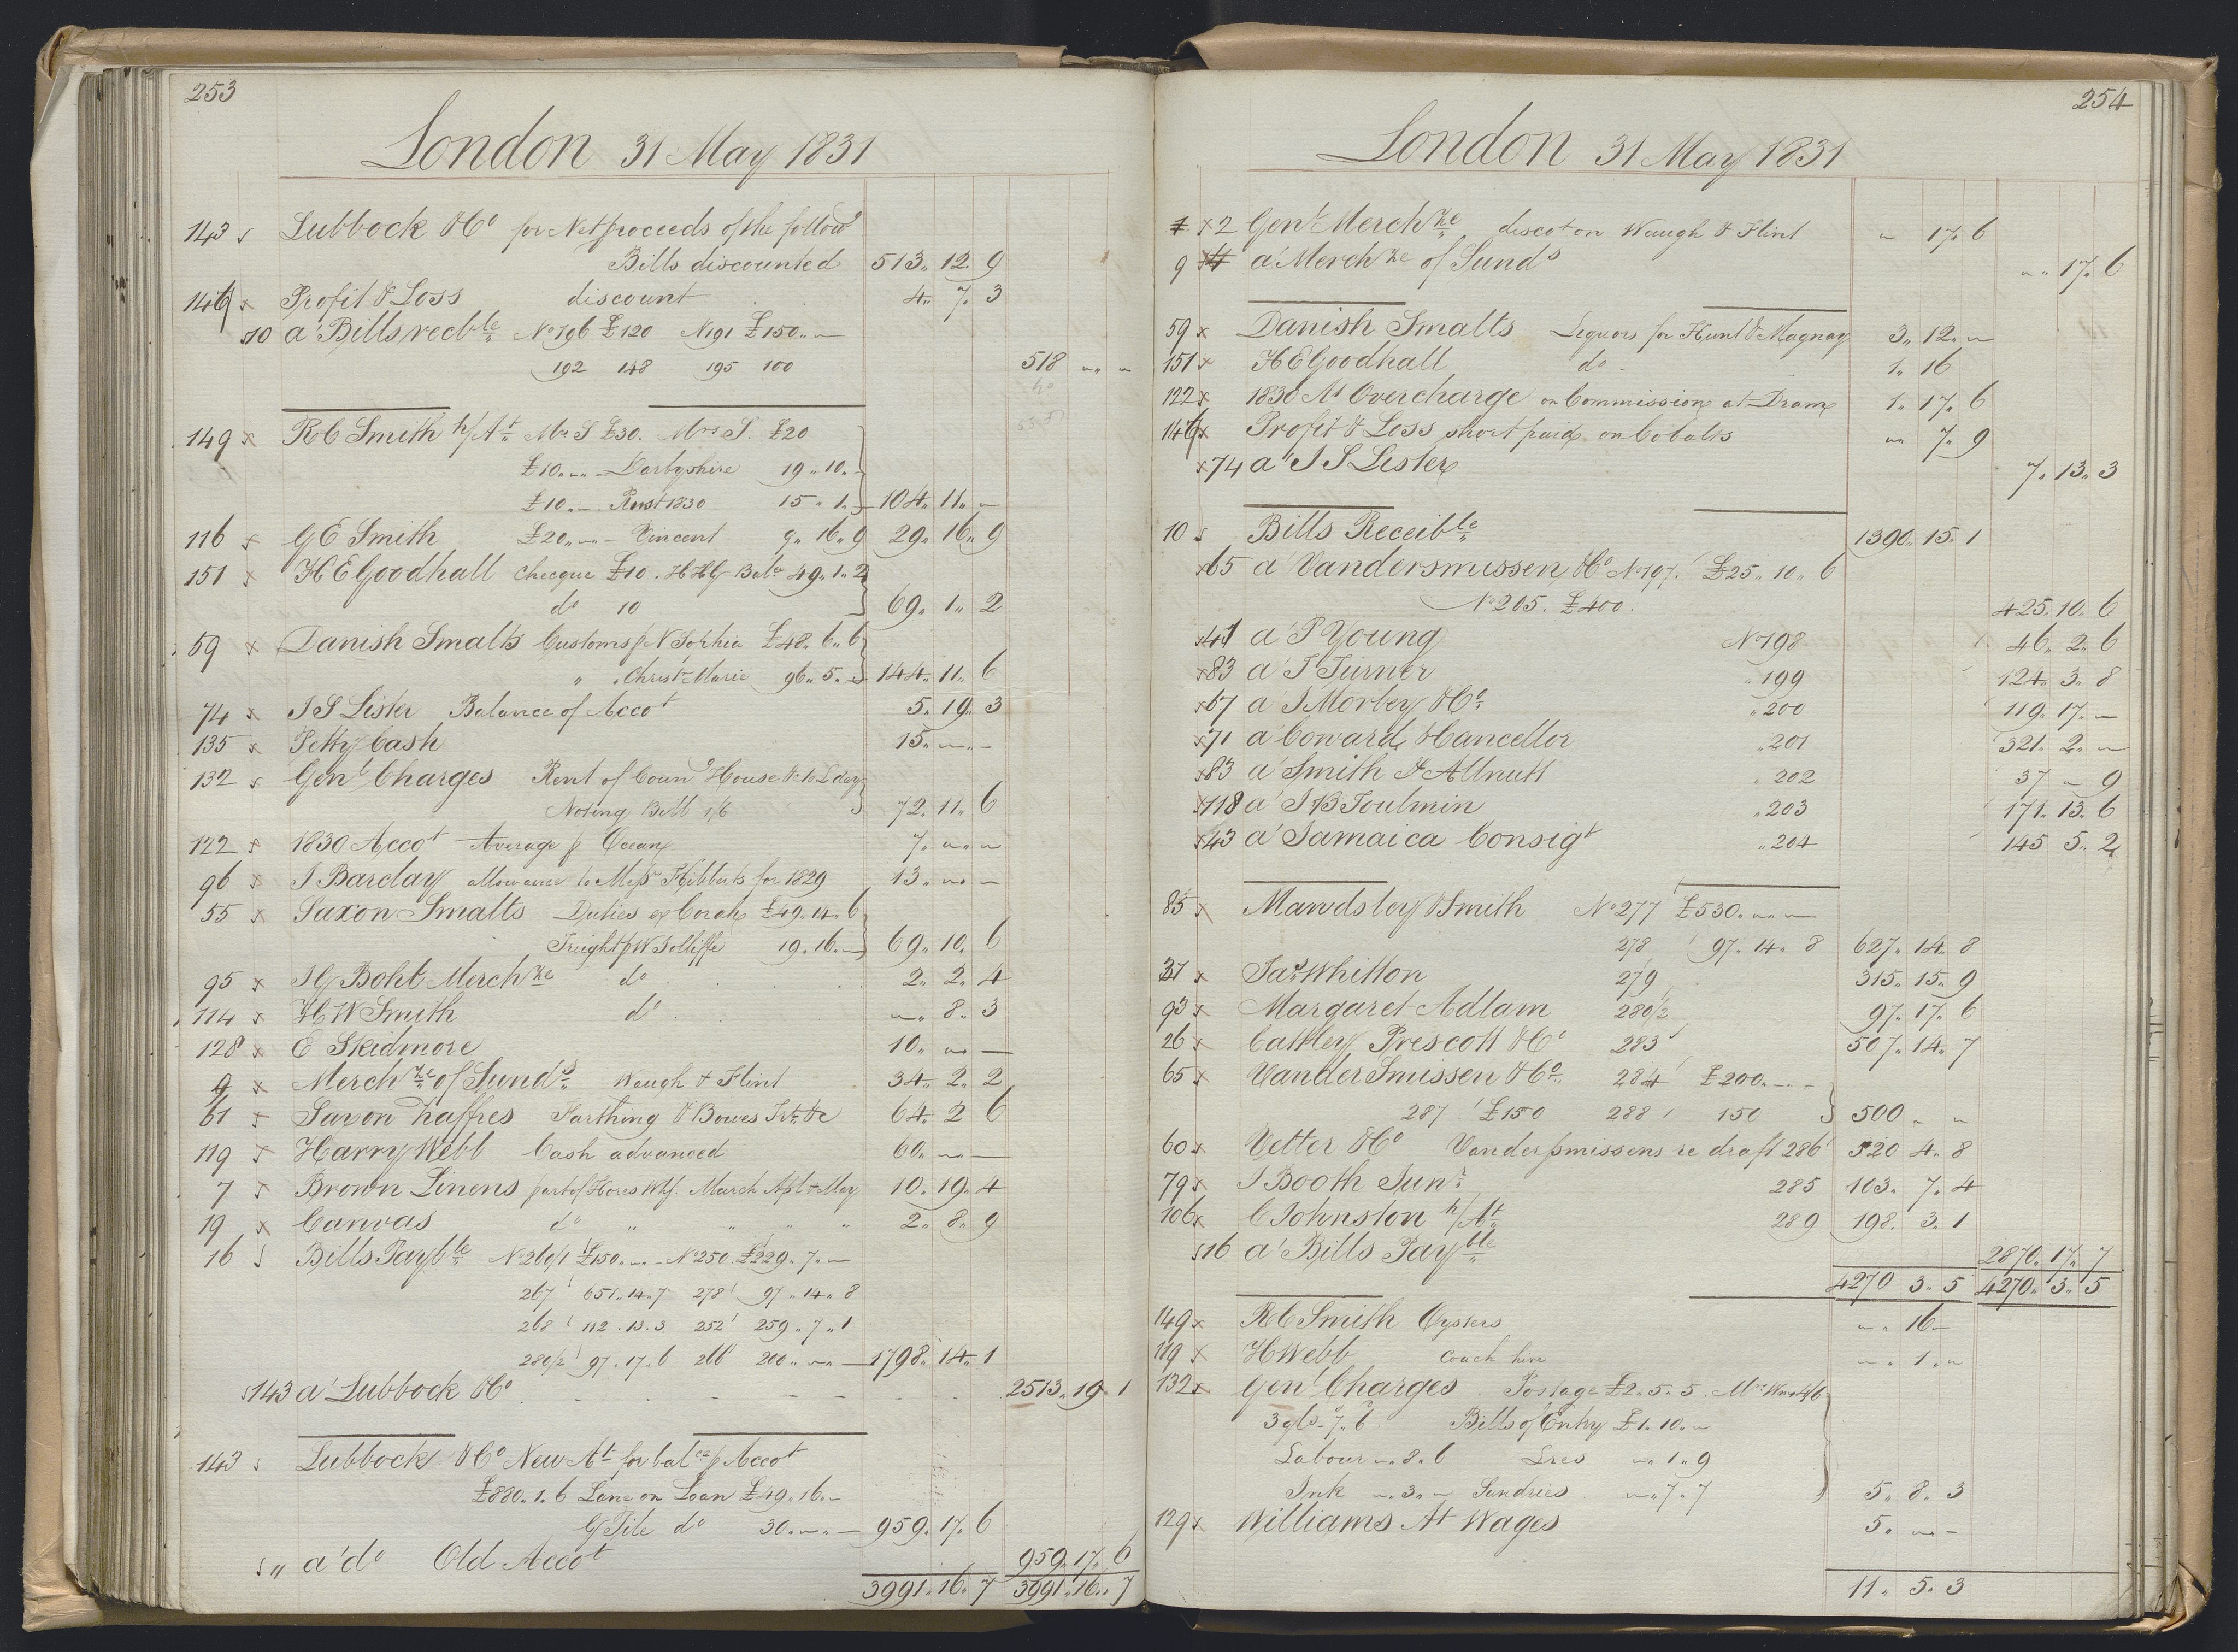 253
London 31 May 1831
143 Lubbock & Co for Net proceeds of the follow
Bills discounted 513.. 12. 9
146 x Profit & Loss discount 4.. 7. 3
10 a Bills recble No 196 £120 N191 £150..
192 148 195 100 518
149 x R C Smith p/At Mr S £30. Mrs S. £20
£10.. Darbyshire 19.. 10..
£10.. 1830 15.. 1.. 104.. 11..
116 x G E Smith £20.. Vincent 9.. 16.. 9 29.. 16.. 9
151 x H E Goodhall Checque £10. H H G Balce 49.. 1.. 2
do 10 69.. 1.. 2
59 x Danish Smalts Customs p N Sophia £48.. 6.. 6
" Christ Marie 96.. 5.. 144.. 11.. 6
74 x J S Lister Balance of Accot 5.. 19. 3
135 x Petty Cash 15..
132 Genl Charges Rent of Coung House &c to L day
Noting Bill 1/6 72.. 11.. 6
122 x 1830 Accot Average p Ocean 7..
96 x J Barclay allowance to Messrs Hibberts for 1829 13..
55 x Saxon Smalts Duties ex Corah £49.. 14.. 6
Freight p W Jolliffe 19.. 16.. 69.. 10.. 6
95 x J G Bohl Merchze do 2.. 2.. 4
114 x H W Smith do 8.. 3
128 x E Skidmore 10..
9 x Merchze of Sunds Waugh & Flint 34.. 2.. 2
61 x Saxon Zaffres Farthing & Bowes Frt &c 64.. 2 6
119 x Harry Webb Cash advanced 60..
7 x Brown Linens part of Hores Whf. March Apl & May 10.. 19.. 4
19 x Canvas do " " " " 2.. 8.. 9
16 Bills Payble No 260/1 £150.. No 250. £229.. 7..
267 651.. 14.. 7 278 97.. 14.. 8
268 112.. 13. 3 252 259.. 7.. 1
280/2 97.. 17.. 6 266 200.. 1798.. 14.. 1
143 a Lubbock & Co 2513.. 19.. 1
143 Lubbock & Co New At for balce p Accot
£880.. 1. 6 Lane on Loan £49.. 16..
G Pile do 30.. 959.. 17.. 6
" a do Old Accot 959.. 17.. 6
3991.. 16.. 7 3991.. 16.. 7
254
London 31 May 1831
x 2 Genl Merchze discot on Waugh & Flint " 17.. 6
9 a Merchze of Sunds " 17.. 6
59 x Danish Smalts Liquors for Hunt & Magnay 3.. 12..
151 x H E Goodhall do 1.. 16
122 x 1830 At Overcharge on Commission at Dram 1.. 17.. 6
146 x Profit & Loss short paid on Cobalts " 7.. 9
x 74 a J S Lister 7.. 13.. 3
10 Bills Receible 1390.. 15.. 1
x 65 a Vandersmissen & Co No 197. £25.. 10.. 6
No 205. £400. 425. 10. 6
x 41 a P Young No 198 46.. 2.. 6
x 83 a J Turner " 199 124.. 3.. 8
x 67 a J Morley & Co " 200 119.. 17..
x 71 a Coward & Cancellor " 201 321.. 2..
x 83 a Smith & Allnutt " 202 37 " 9
x 118 a J B Toulmin " 203 171.. 13.. 6
x 43 a Jamaica Consigt " 204 145 5.. 2
85 x Mawdsley & Smith No 277 £530..
278 97.. 14.. 8 627.. 14.. 8
37 x Jas Whitton 279 315.. 15.. 9
93 x Margaret Adlam 280/2 97.. 17.. 6
26 x Cattley Prescott & Co 283 507.. 14.. 7
65 x Vander Smissen & Co 284 £200..
287 £150 288 150 500 " "
60 x Vetter & Co Vandersmissens re draft 286 520 4.. 8
79 x J Booth Junr 285 103.. 7.. 4
106 x C Johnston p/At 289 198. 3.. 1
16 a Bills Payble 2870.. 17.. 7
4270 3.. 5 4270.. 3.. 5
149 x R C Smith Oysters " 16
119 x H Webb Coach hire " 1..
132 x Genl Charges Postage £2.. 5.. 5.
3 7.. 6 Bills of Entry £1.. 10..
Labour 8.. 6 1.. 9
Ink 3.. Sundries 7.. 7 5.. 8.. 3
129 x Williams At Wages 5..
11.. 5.. 3